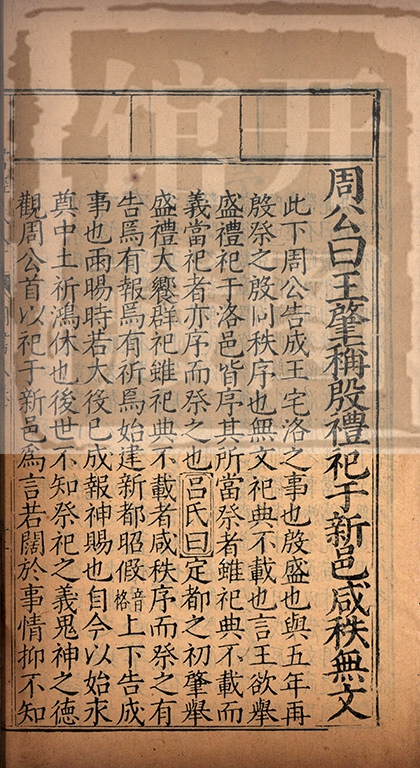 周公曰王肇稱殷禮祀于新邑咸秩無文
此下周公告成王宅洛之事也殷盛也與五年再
殷祭之殷同秩序也無文祀典不載也言王欲舉
盛禮祀于洛邑皆序其所當祭者雖祀典不載而
義當祀者亦序而祭之也呂氏曰定都之初肇舉
盛禮大饗群祀雖祀典不載者咸秩序而祭之有
告焉有報焉有祈焉始建新都昭假音格上下告成
事也雨暘時若大役已成報神賜也自今以始永
奠中土祈鴻休也後世不知祭祀之義鬼神之德
觀周公首以祀于新邑爲言若闊於事情抑不知